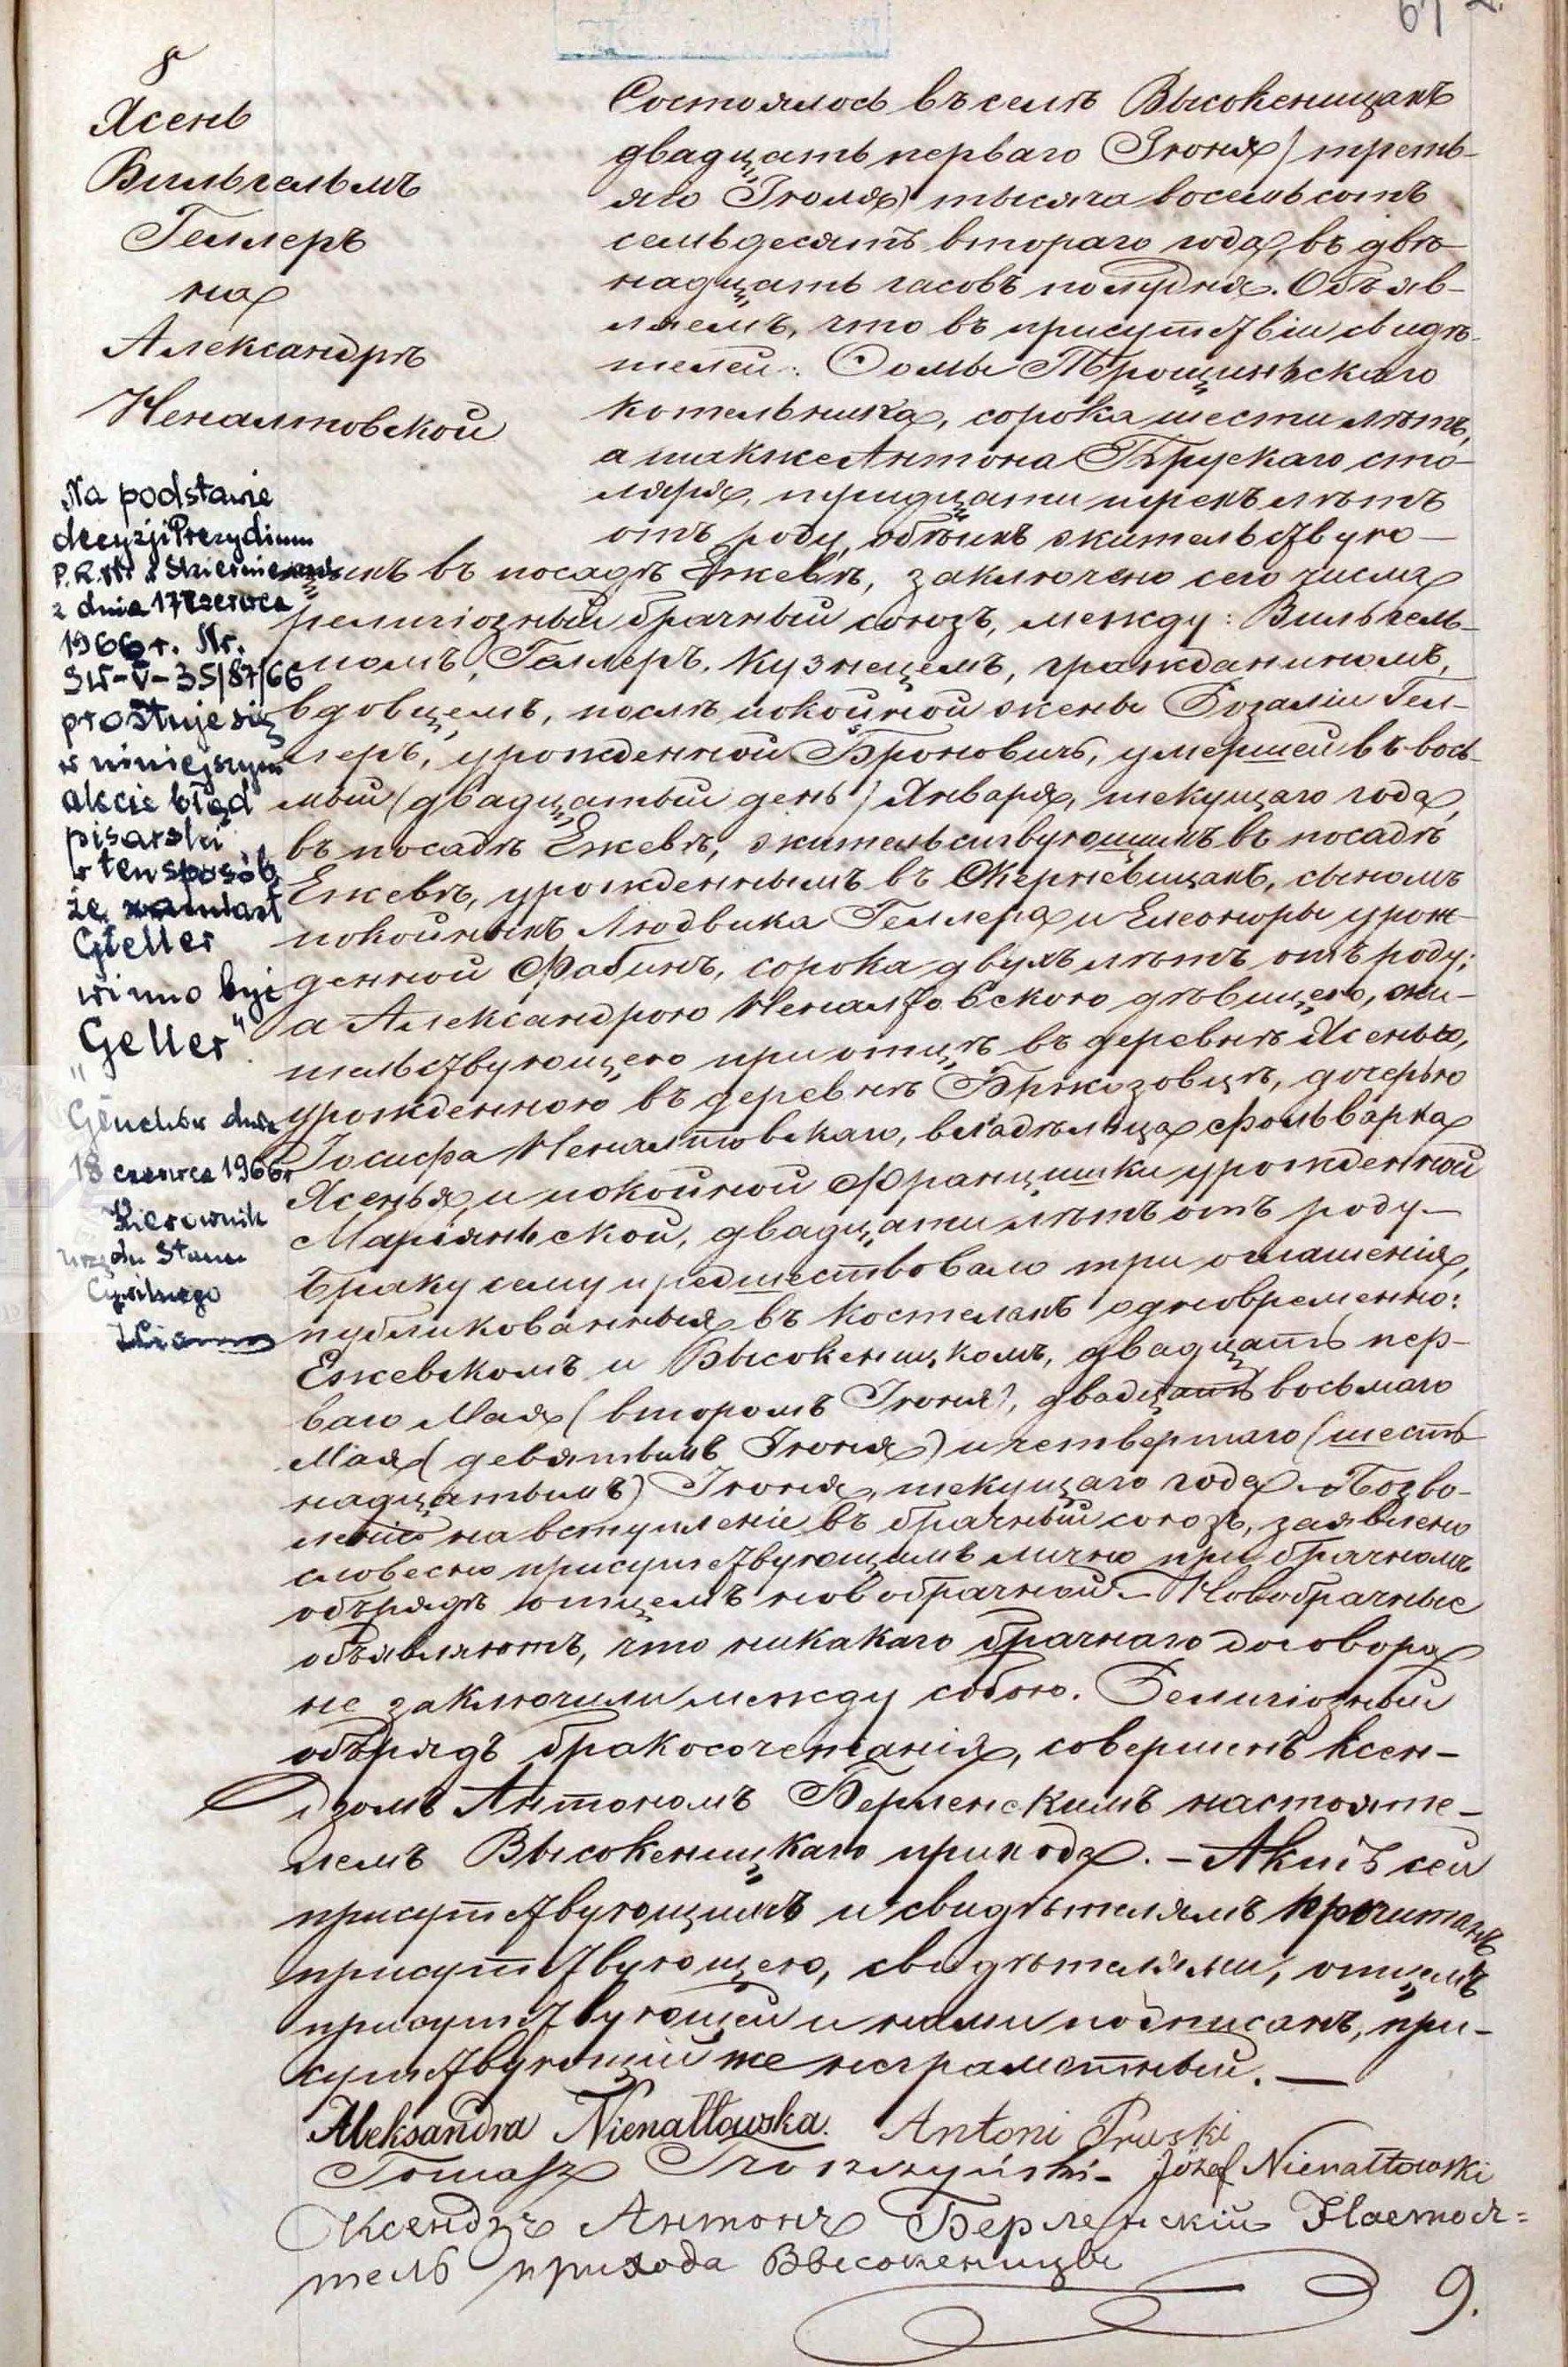 67
8
Ясень
Вильгельмъ
Геллеръ
на
Александрѣ
Неналтовской
Na podstawie
decyzji Prezydium
P.R.N. w Skierniewicach
z dnia 17 czerwca
1966 r. Nr.
SW-V-35/87/66
prostuje się
w niniejszym
akcie błąd
pisarski
w ten sposób,
że zamiast
Gieller
winno być
"Geller"
Głuchów dnia
18 czerwca 1966 r
Kierownik
Urzędu Stanu
Cywilnego
Состоялось въ селѣ Высокеницахъ
двадцать перваго Іюня / треть-
яго Іюля) тысяча восемьсотъ
семьдесятъ втораго года, въ двѣ-
надцать часовъ полудня. Объяв-
ляемъ, что въ присутствіи свидѣ-
телей: Ѳомы Трощинскаго
котельника, сорока шести лѣтъ,
а также Антона Прускаго сто-
ляра, тридцати трехъ лѣтъ
отъ роду, обѣихъ жительствую-
щихъ въ посадѣ Ежевѣ, заключено сего числа
религіозный брачный союзъ, между: Вильгель-
момъ, Геллеръ, кузнецемъ, гражданиномъ,
вдовцемъ, послѣ покойной жены Розаліи Гел-
леръ, урожденной Броновичъ, умершей въ вось-
мый (двадцатый день) Января, текущаго года,
въ посадѣ Ежевѣ, жительствующимъ въ посадѣ
Ежевѣ, урожденнымъ въ Скерневицахъ, сыномъ
покойныхъ Людвика Геллера и Елеоноры урож-
денной Фабинъ, сорока двухъ лѣтъ отъ роду;
а Александрою Неналтовскою дѣвицею, жи-
тельствующею при отцѣ въ деревнѣ Ясенью,
урожденною въ деревнѣ Бржозовцѣ, дочерью
Іосифа Неналтовскаго, владѣльца фольварка
Ясенья, и покойной Францишки урожденной
Маріянской, двадцати лѣтъ отъ роду —
Браку сему предшествовало три оглашенія,
публикованныя въ костелахъ одновременно:
Ежевскомъ и Высокеницкомъ, двадцать пер-
ваго Мая (второмъ Іюня), двадцать восьмаго
Мая (девятымъ Іюня) и четвертаго (шест-
надцатымъ) Іюня, текущаго года — Позво-
леніе на вступленіе въ брачный союзъ, заявлено
словесно присутствующимъ лично при брачномъ
обрядѣ отцемъ новобрачной — Новобрачные
объявляютъ, что никакаго брачнаго договора
не заключили между собою. Религіозный
обърядъ бракосочетанія, совершенъ ксен-
дзомъ Антономъ Берленскимъ настояте-
лемъ Высокеницкаго прихода. — Актъ сей
присутствующимъ и свидѣтелямъ прочитанъ
присутствующею, свидѣтелями, отцемъ
присутствующей и нами подписанъ, при-
сутствующій же неграмотный. —
Aleksandra Nienałtowska. Antoni Pruski
Tomasz Troszczyński - Józef Nienałtowski
Ксендзъ Антонъ Берленскій Настоя=
тель прихода Высокеницы
9.